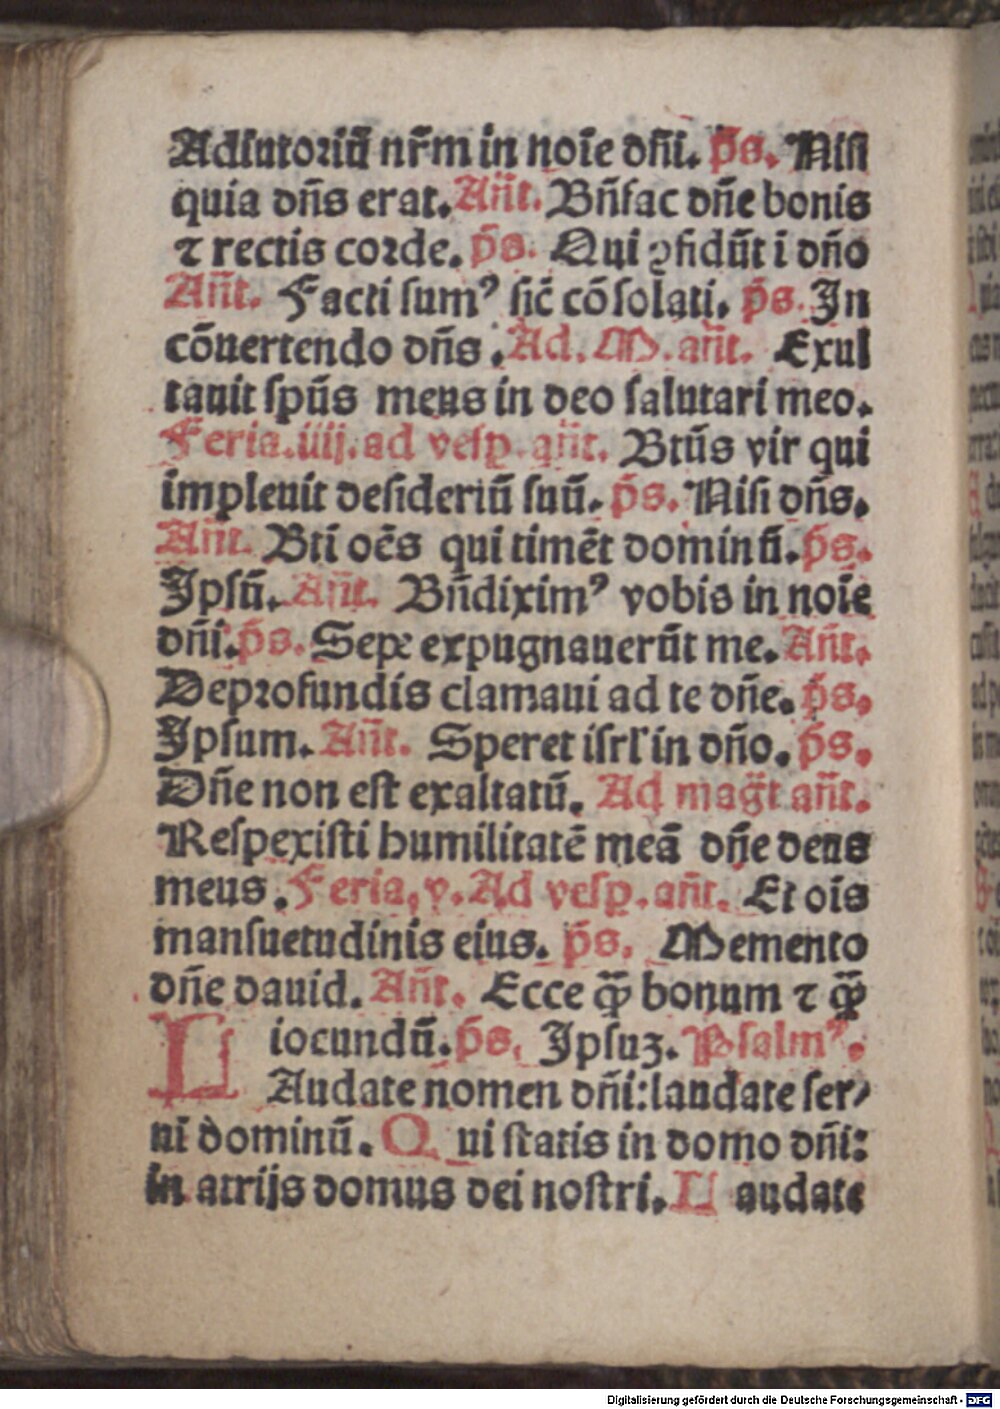 Adiutoriū nr̄m in noīe dn̄i. p̄s. Nisi
quia dn̄s erat. An̄t. Bn̄fac dn̄e bonis
⁊ rectis corde. p̄s. Qui ꝯfidūt ī dn̄o
An̄t. Facti sumꝰ sic̄ cōsolati. p̄s. In
cōuertendo dn̄s. Ad. M. an̄t. Exul
tauit spūs meus in deo salutari meo.
Feria. iiij. ad vesp. an̄t. Btūs vir qui
impleuit desideriū suū. p̄s. Nisi dn̄s.
An̄t. Btī oēs qui timēt dominū. p̄s.
Ipsū. An̄t. Bn̄diximꝰ vobis in noīe
dn̄i. p̄s. Sepe expugnauerūt me. An̄t.
Deprofundis clamaui ad te dn̄e. p̄s.
Ipsum. An̄t. Speret isrl' in dn̄o. p̄s.
Dn̄e non est exaltatū. Ad mag̈t an̄t.
Respexisti humilitatē meā dn̄e deus
meus. Feria. v. Ad vesp. an̄t. Et oīs
mansuetudinis eius. p̄s. Memento
dn̄e dauid. An̄t. Ecce qȝ̄ bonum ⁊ qȝ̄
iocundū. p̄s. Ipsuz. Psalmꝰ.
LAudate nomen dn̄i: laudate ser⸗
ui dominū. Qui statis in domo dn̄i:
in atrijs domus dei nostri. Laudate
Digitalisierung gefördert durch die Deutsche Forschungsgemeinschaft - DFG